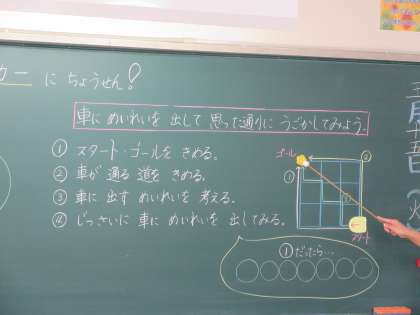 カー に ちょうせん!
車に めいれいを 出して 思った通りに うごかしてみよう。
① スタート・ゴールを きめる。
② 車が 通る 道を きめる。
③ 車に 出す めいれいを 考える。
④ じっさいに 車に めいれいを 出してみる。
ゴール
①
②
スタート
① だったら…